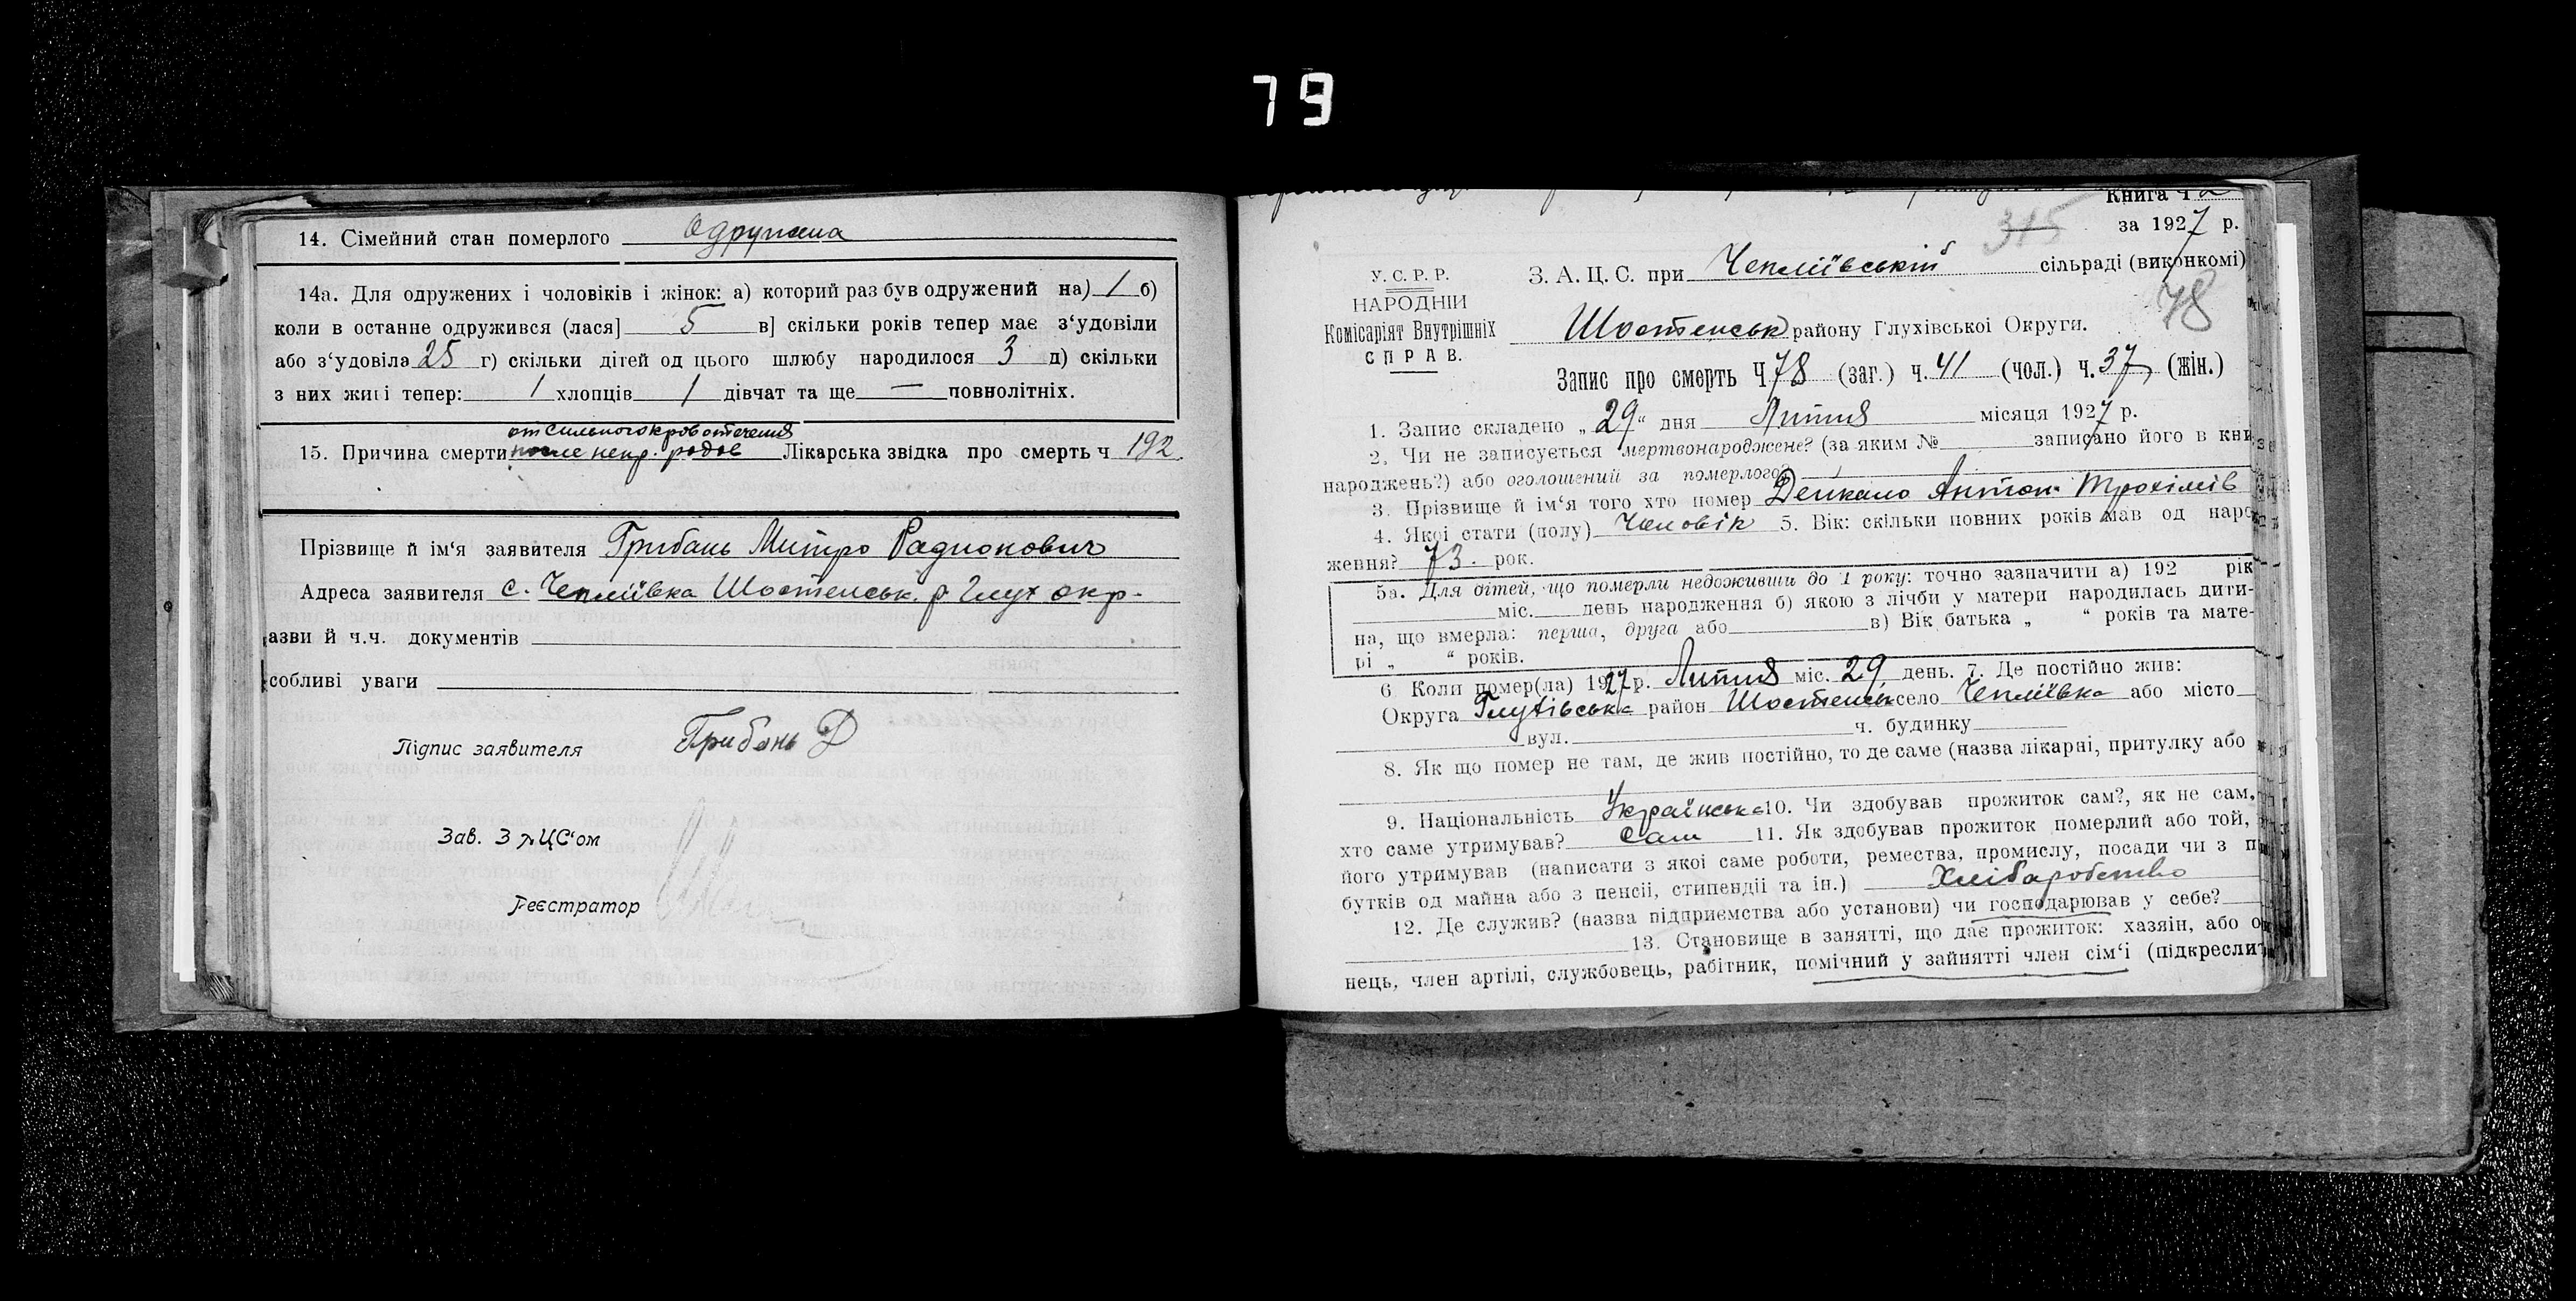 79
14. Сімейний стан померлого Одружена
14а. Для одружених і чоловіків і жінок: а) которий раз був одружений на) 1 б)
коли в останне одружився (лася] 5 в] скільки років тепер має з‘удовіли
або з‘удовіла 25 г) скільки дітей од цього шлюбу народилося 3 д) скільки
з них живі тепер: 1 хлопців 1 дівчат та ще — повнолітніх.
от сильного кровотечения
15. Причина смерти после непр. родов Лікарська звідка про смерть ч 192
Прізвище й ім‘я заявителя Грибань Митро Радионович
Адреса заявителя с. Чепліївка Шостенськ. р Глух окр-
азви й ч.ч. документів
собливі уваги
Підпис заявителя Грибань Д
Зав. ЗАЦС‘ом
Реєстратор
Книга Ч 2
315 за 1927 р.
У. С. Р. Р. З. А. Ц. С. при Чепліївській сільраді (виконкомі)
НАРОДНІЙ 78
Комісаріят Внутрішніх Шостенськ району Глухівської Округи.
СПРАВ.
Запис про смерть Ч 78 (заг.) ч. 41 (чол.) ч. 37 (жін.)
1. Запис складено „29“ дня Липня місяця 1927 р.
2. Чи не записується мертвонароджене? (за яким № записано його в кни
народжень?) або оголошений за померлого?
3. Прізвище й ім‘я того хто помер Дейкало Антон Трохімів
4. Якої стати (полу) Чоловік 5. Вік: скільки повних років мав од наро
ження? 73. рок.
5а. Для дітей, що померли недоживши до 1 року: точно зазначити а) 192 рік
міс. день народження б) якою з лічби у матери народилась дити-
на, що вмерла: перша, друга або в) Вік батька „ “ років та мате-
рі „ “ років.
6. Коли помер(ла) 1927 р. Липня міс. 29 день. 7. Де постійно жив:
Округа Глухівська район Шостенськ село Чепліївка або місто
вул. ч. будинку
8. Як що помер не там, де жив постійно, то де саме (назва лікарні, притулку або
9. Національність Українська 10. Чи здобував прожиток сам?, як не сам,
хто саме утримував? Сам 11. Як здобував прожиток померлий або той,
його утримував (написати з якої саме роботи, ремества, промислу, посади чи з п
бутків од майна або з пенсії, стипендії та ін.) Хліборобство
12. Де служив? (назва підприємства або установи) чи господарював у себе?
13. Становище в занятті, що дає прожиток: хазяїн, або о
нець, член артілі, службовець, рабітник, помічний у зайнятті член сім‘ї (підкресли